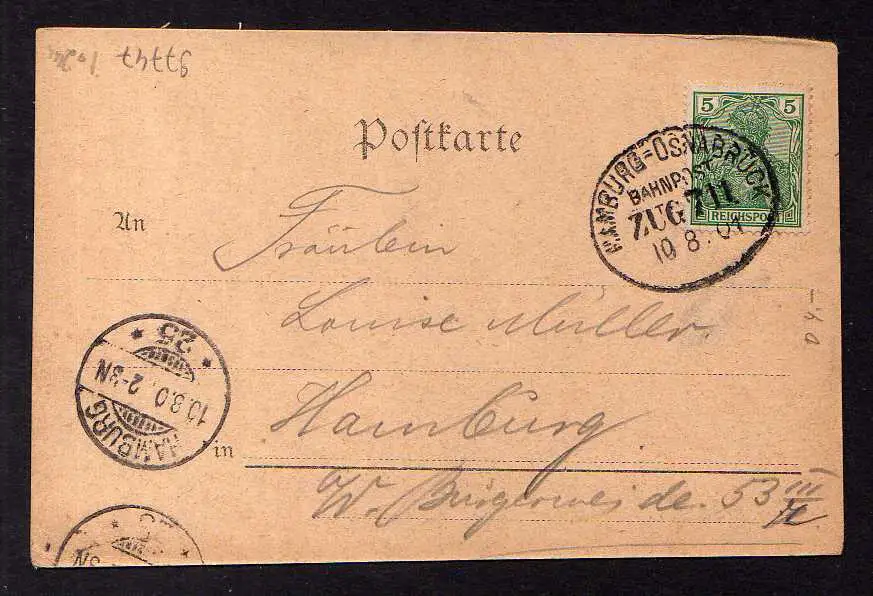 97747
Postkarte
5 5
REICHSPO
HAMBURG=OSNABRÜCK
BAHNPOST
ZUG 711
10 8. 01
An
Fräulein
Louise Müller.
Hamburg
in
W. Bürgerweide. 53 III
HAMBURG
10.8.0 2-3N
* 25 *